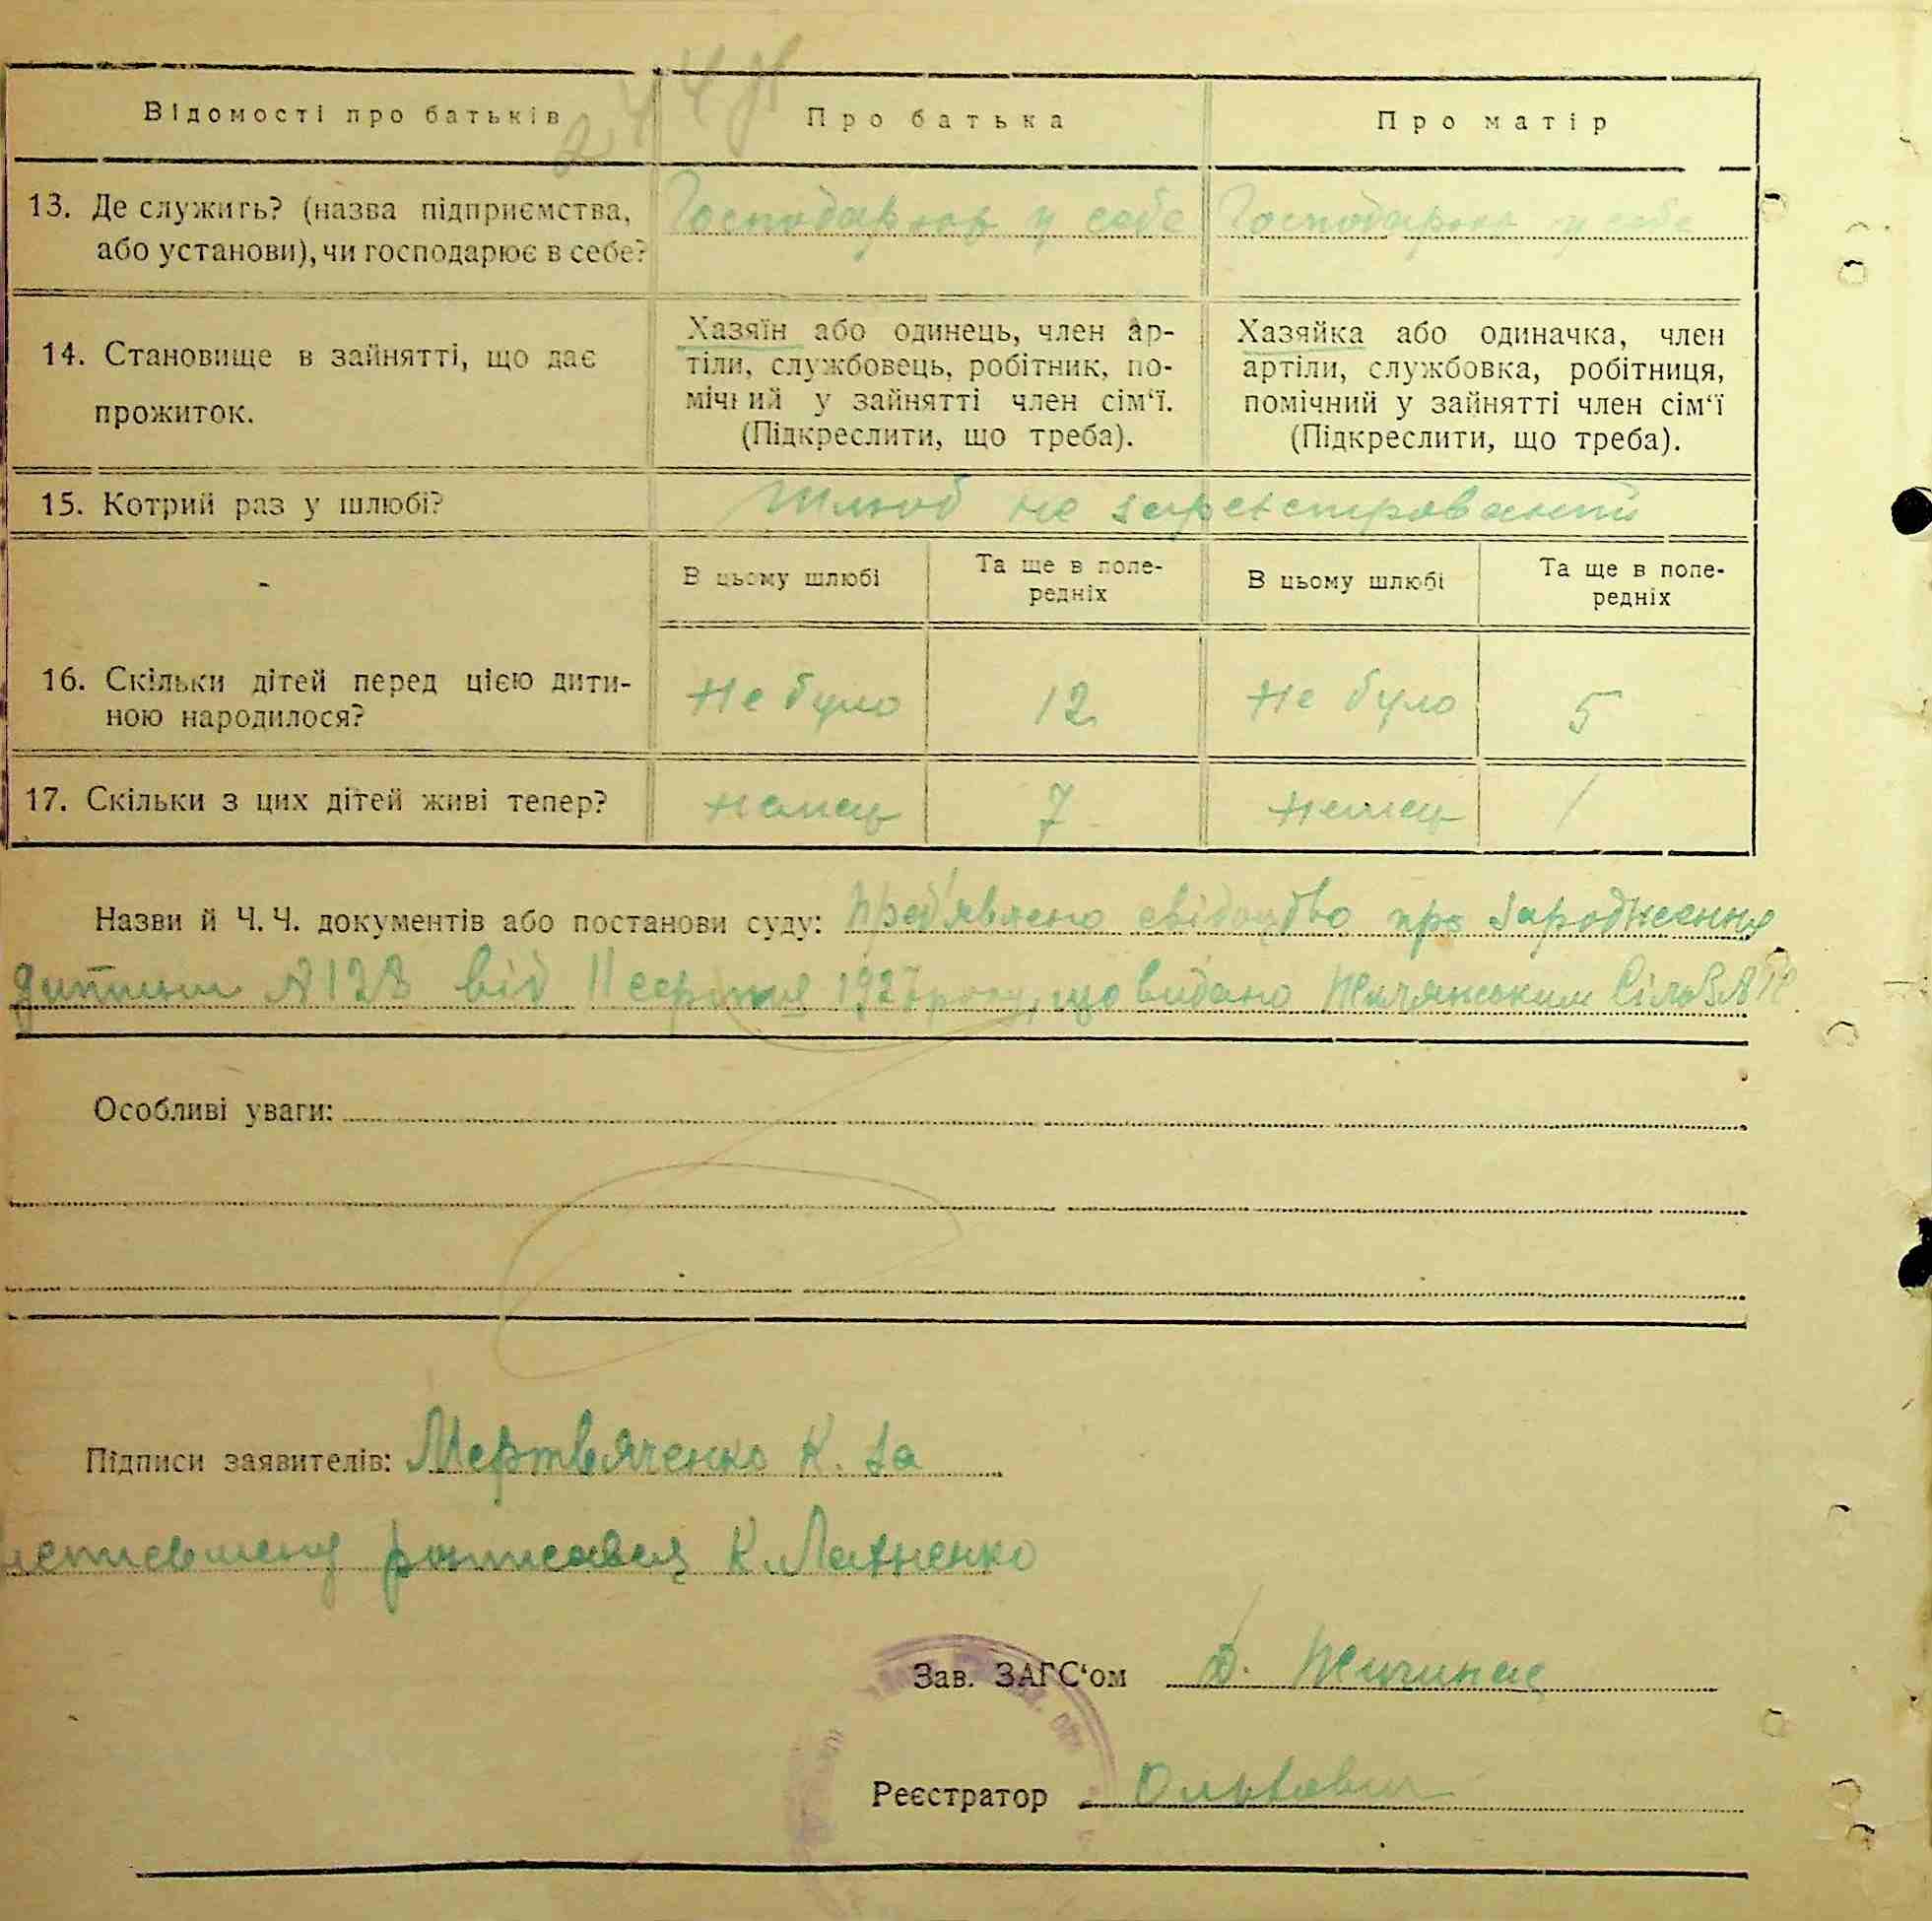 244
Відомості про батьків Про батька Про матір
13. Де служить? (назва підприємства, Господарює у себе Господарює у себе
або установи), чи господарює в себе?
14. Становище в зайнятті, що дає
прожиток.
Хазяїн або одинець, член ар-
тіли, службовець, робітник, по-
мічний у зайнятті член сім‘ї.
(Підкреслити, що треба).
Хазяйка або одиначка, член
артіли, службовка, робітниця,
помічний у зайнятті член сім‘ї
(Підкреслити, що треба).
15. Котрий раз у шлюбі? Шлюб не зареєстрований
В цьому шлюбі Та ще в попе-
редніх В цьому шлюбі Та ще в попе-
редніх
16. Скільки дітей перед цією дити-
ною народилося? Не було 12 Не було 5
17. Скільки з цих дітей живі тепер? Немає 7 Немає 1
Назви й Ч. Ч. документів або постанови суду: пред'явлено свідоцтво про зародження
дитини №128 від 11 серпня 1927 року, що видано Жилянським
Особливі уваги:
Підписи заявителів: Мертвяченко К. за
росписався К. Лахненко
Зав. ЗАГС‘ом
Реєстратор